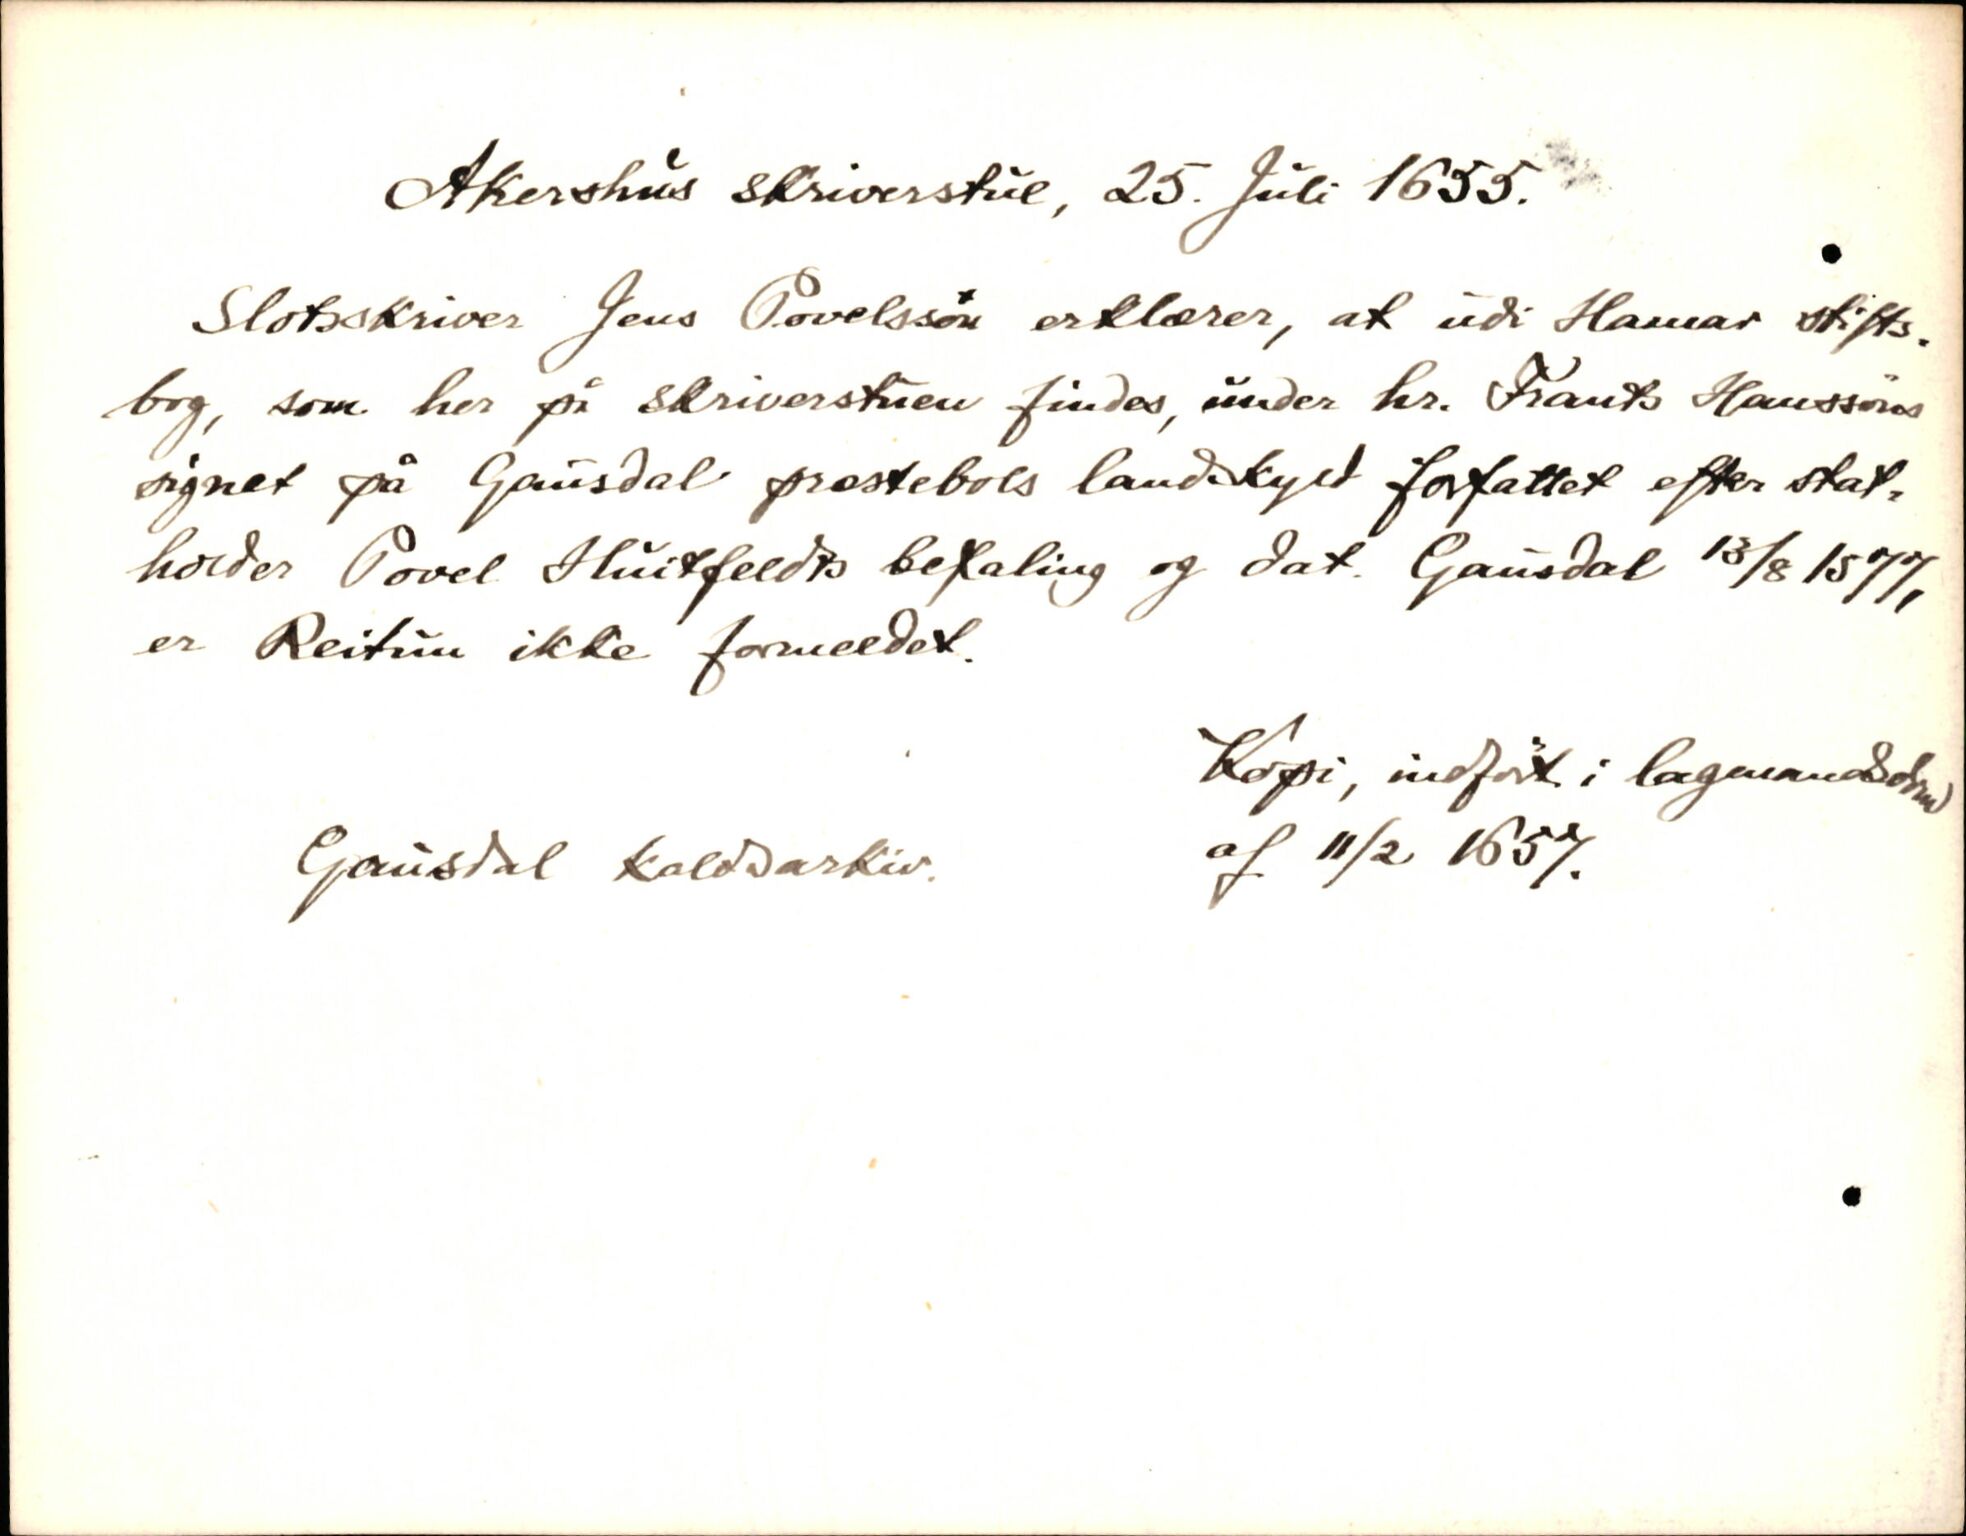 Akershus skriverstue, 25. Juli 1655.
Slotsskriver Jens Povelssön erklærer, at udi Hamar stifts-
bog, som her på skriverstuen findes, under hr. Frants Hanssöns
signet på Gausdal prestebols landskyld forfattet efter stat-
holder Povel Huitfeldts befaling og dat. Gausdal 13/8 1577,
er Reitun ikke formeldet.
Kopi, indfört i lagmandsdom
af 11/2 1657.
Gausdal kaldsarkiv.